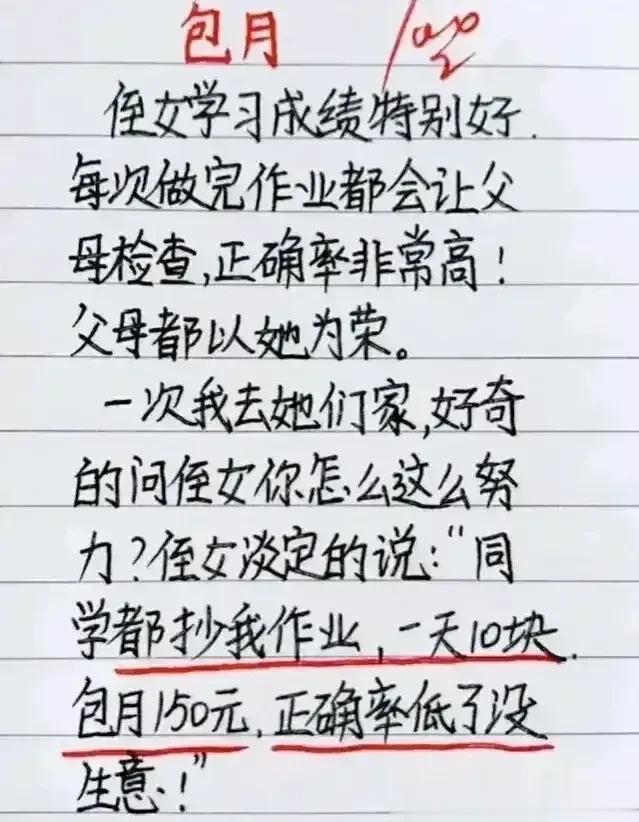 包月
侄女学习成绩特别好.
每次做完作业都会让父
母检查,正确率非常高!
父母都以她为荣。
一次我去她们家,好奇
的问侄女你怎么这么努
力?侄女淡定的说:“同
学都抄我作业,一天10块.
包月150元,正确率低了没
生意!”